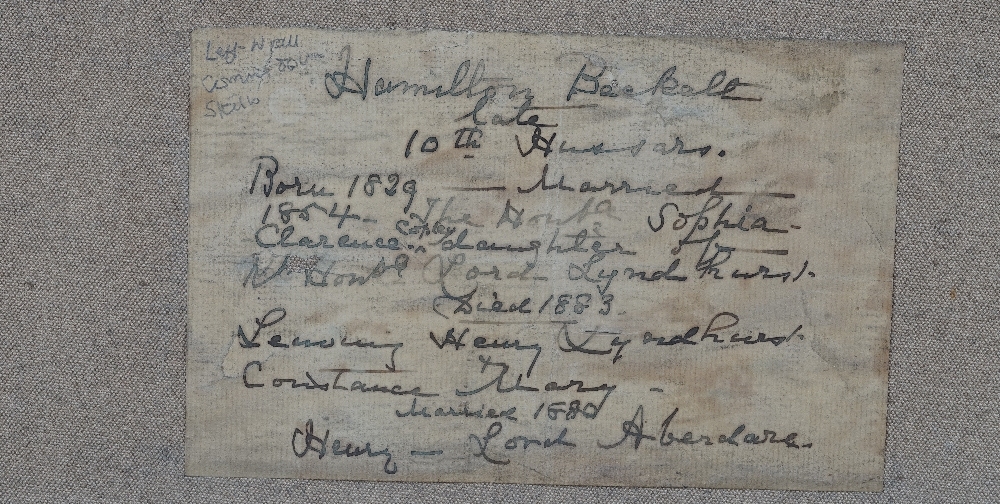 Left Wall
Hamilton Beckett
late
10th Hussars.
Born 1829 — Married
1854 - The Honble Sophia -
Clarence Copley daughter of
Rt Honble Lord Lyndhurst.
Died 1883.
Leaving Henry Lyndhurst
& Constance Mary -
Married 1880
Henry - Lord Aberdare.